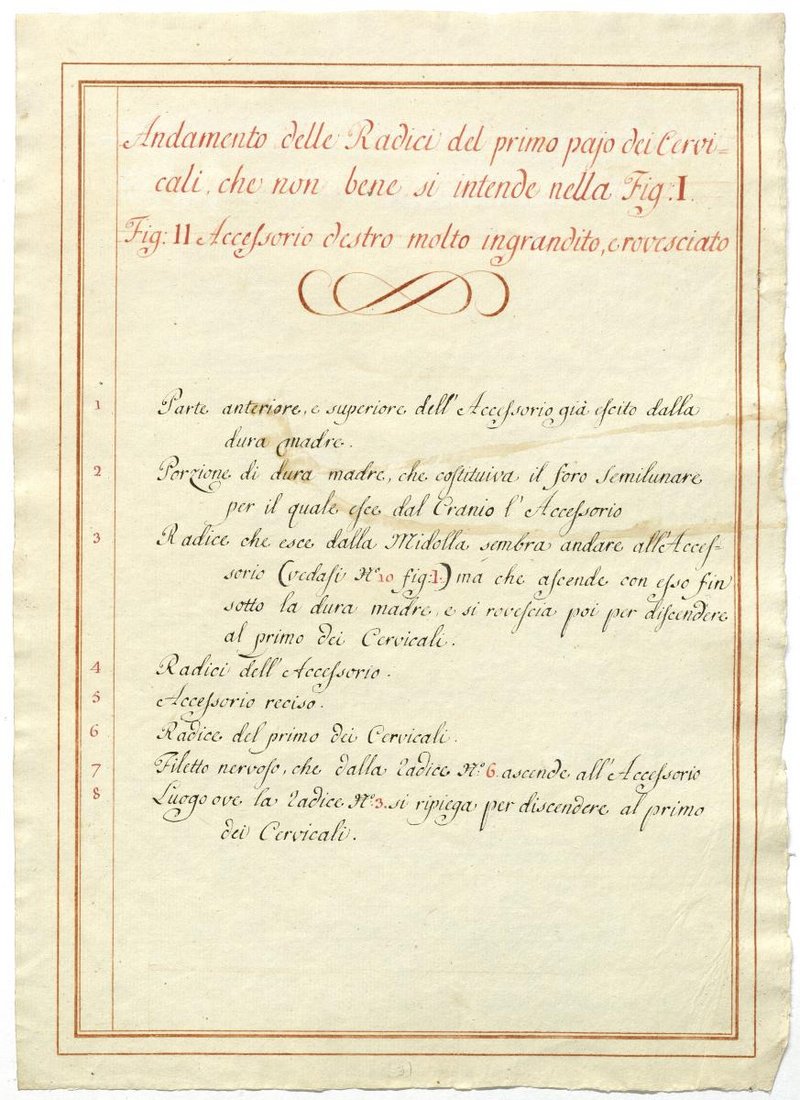 Andamento delle Radici del primo pajo dei Cervi=
cali, che non bene si intende nella Fig: I.
Fig: II Acceſsorio destro molto ingrandito, e rovesciato
1 Parte anteriore, e superiore dell' Acceſsorio già eſcito dalla
dura madre.
2 Porzione di dura madre, che coſtituiva il foro Semilunare
per il quale eſce dal Cranio l' Acceſsorio
3 Radice che esce dalla Midolla sembra andare all'Acceſ=
sorio (vedaſi Nº 10 fig: I.) ma che aſcende con eſso fin
sotto la dura madre, e si roveſcia poi per diſcendere
al primo dei Cervicali.
4 Radici dell' Acceſsorio.
5 Acceſsorio reciso.
6 Radice del primo dei Cervicali.
7 Filetto nervoſo, che dalla Radice Nº: 6. ascende all' Acceſsorio
8 Luogo ove la Radice Nº: 3. si ripiega per discendere al primo
dei Cervicali.